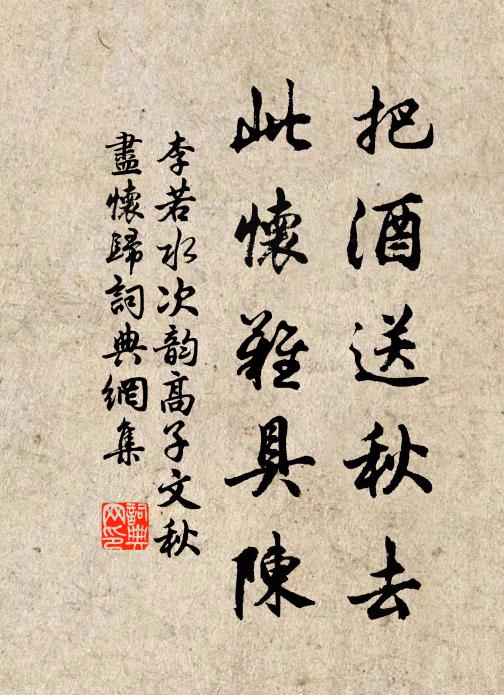 把酒送秋去
此懷難具陳
李若水次韵高子文秋
盡懷歸詞典網集
詞典網印